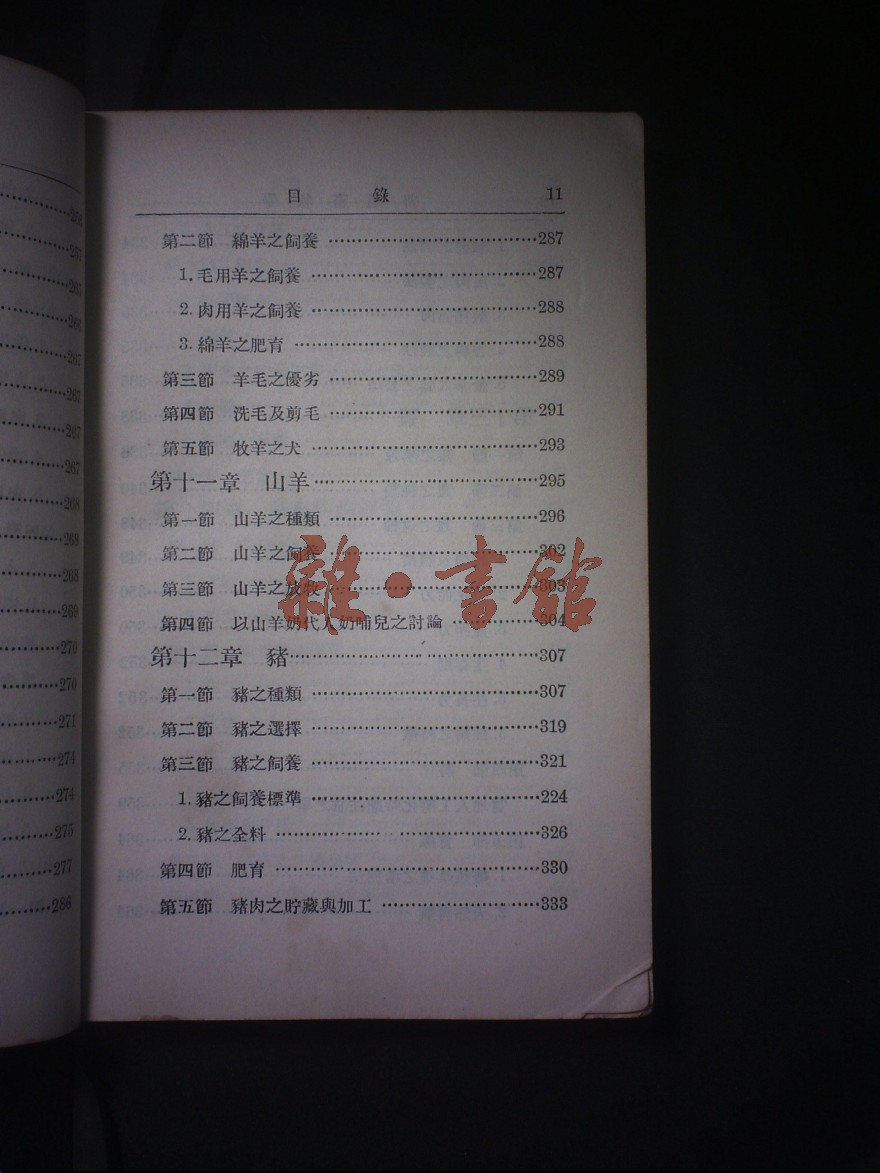 256
257
265
266
267
267
267
267
268
268
268
269
270
270
271
274
274
275
277
286
目錄 11
第二節 綿羊之飼養 287
1. 毛用羊之飼養 287
2. 肉用羊之飼養 288
3. 綿羊之肥育 288
第三節 羊毛之優劣 289
第四節 洗毛及剪毛 291
第五節 牧羊之犬 293
第十一章 山羊 295
第一節 山羊之種類 296
第二節 山羊之飼養 302
第三節 山羊之放牧 303
第四節 以山羊奶代人奶哺兒之討論 304
第十二章 豬 307
第一節 豬之種類 307
第二節 豬之選擇 319
第三節 豬之飼養 321
1. 豬之飼養標準 224
2. 豬之全料 326
第四節 肥育 330
第五節 豬肉之貯藏與加工 333
雜·書館